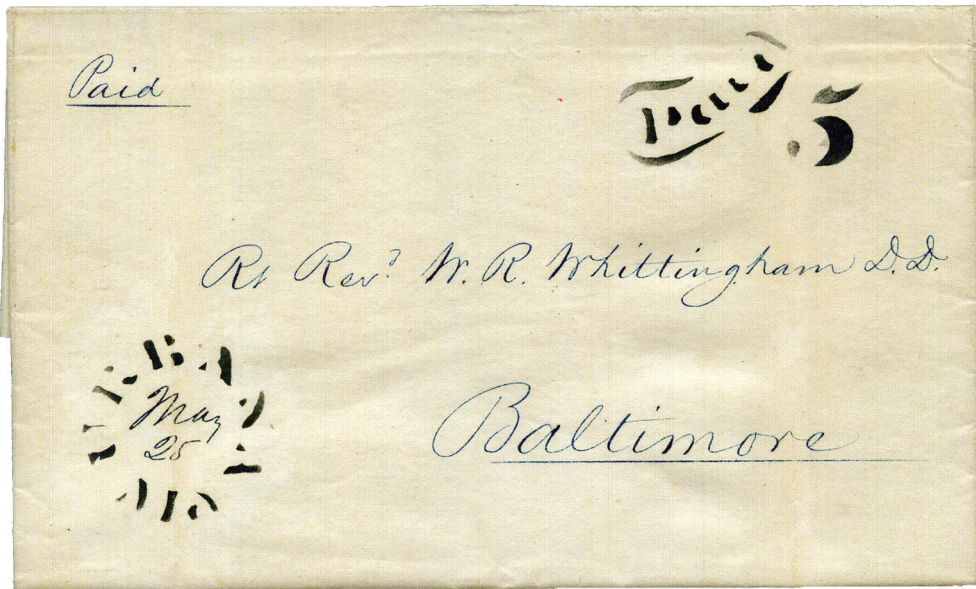 Paid
Paid 5
Rt Revd W. R. Whittingham D.D.
May
25
Baltimore